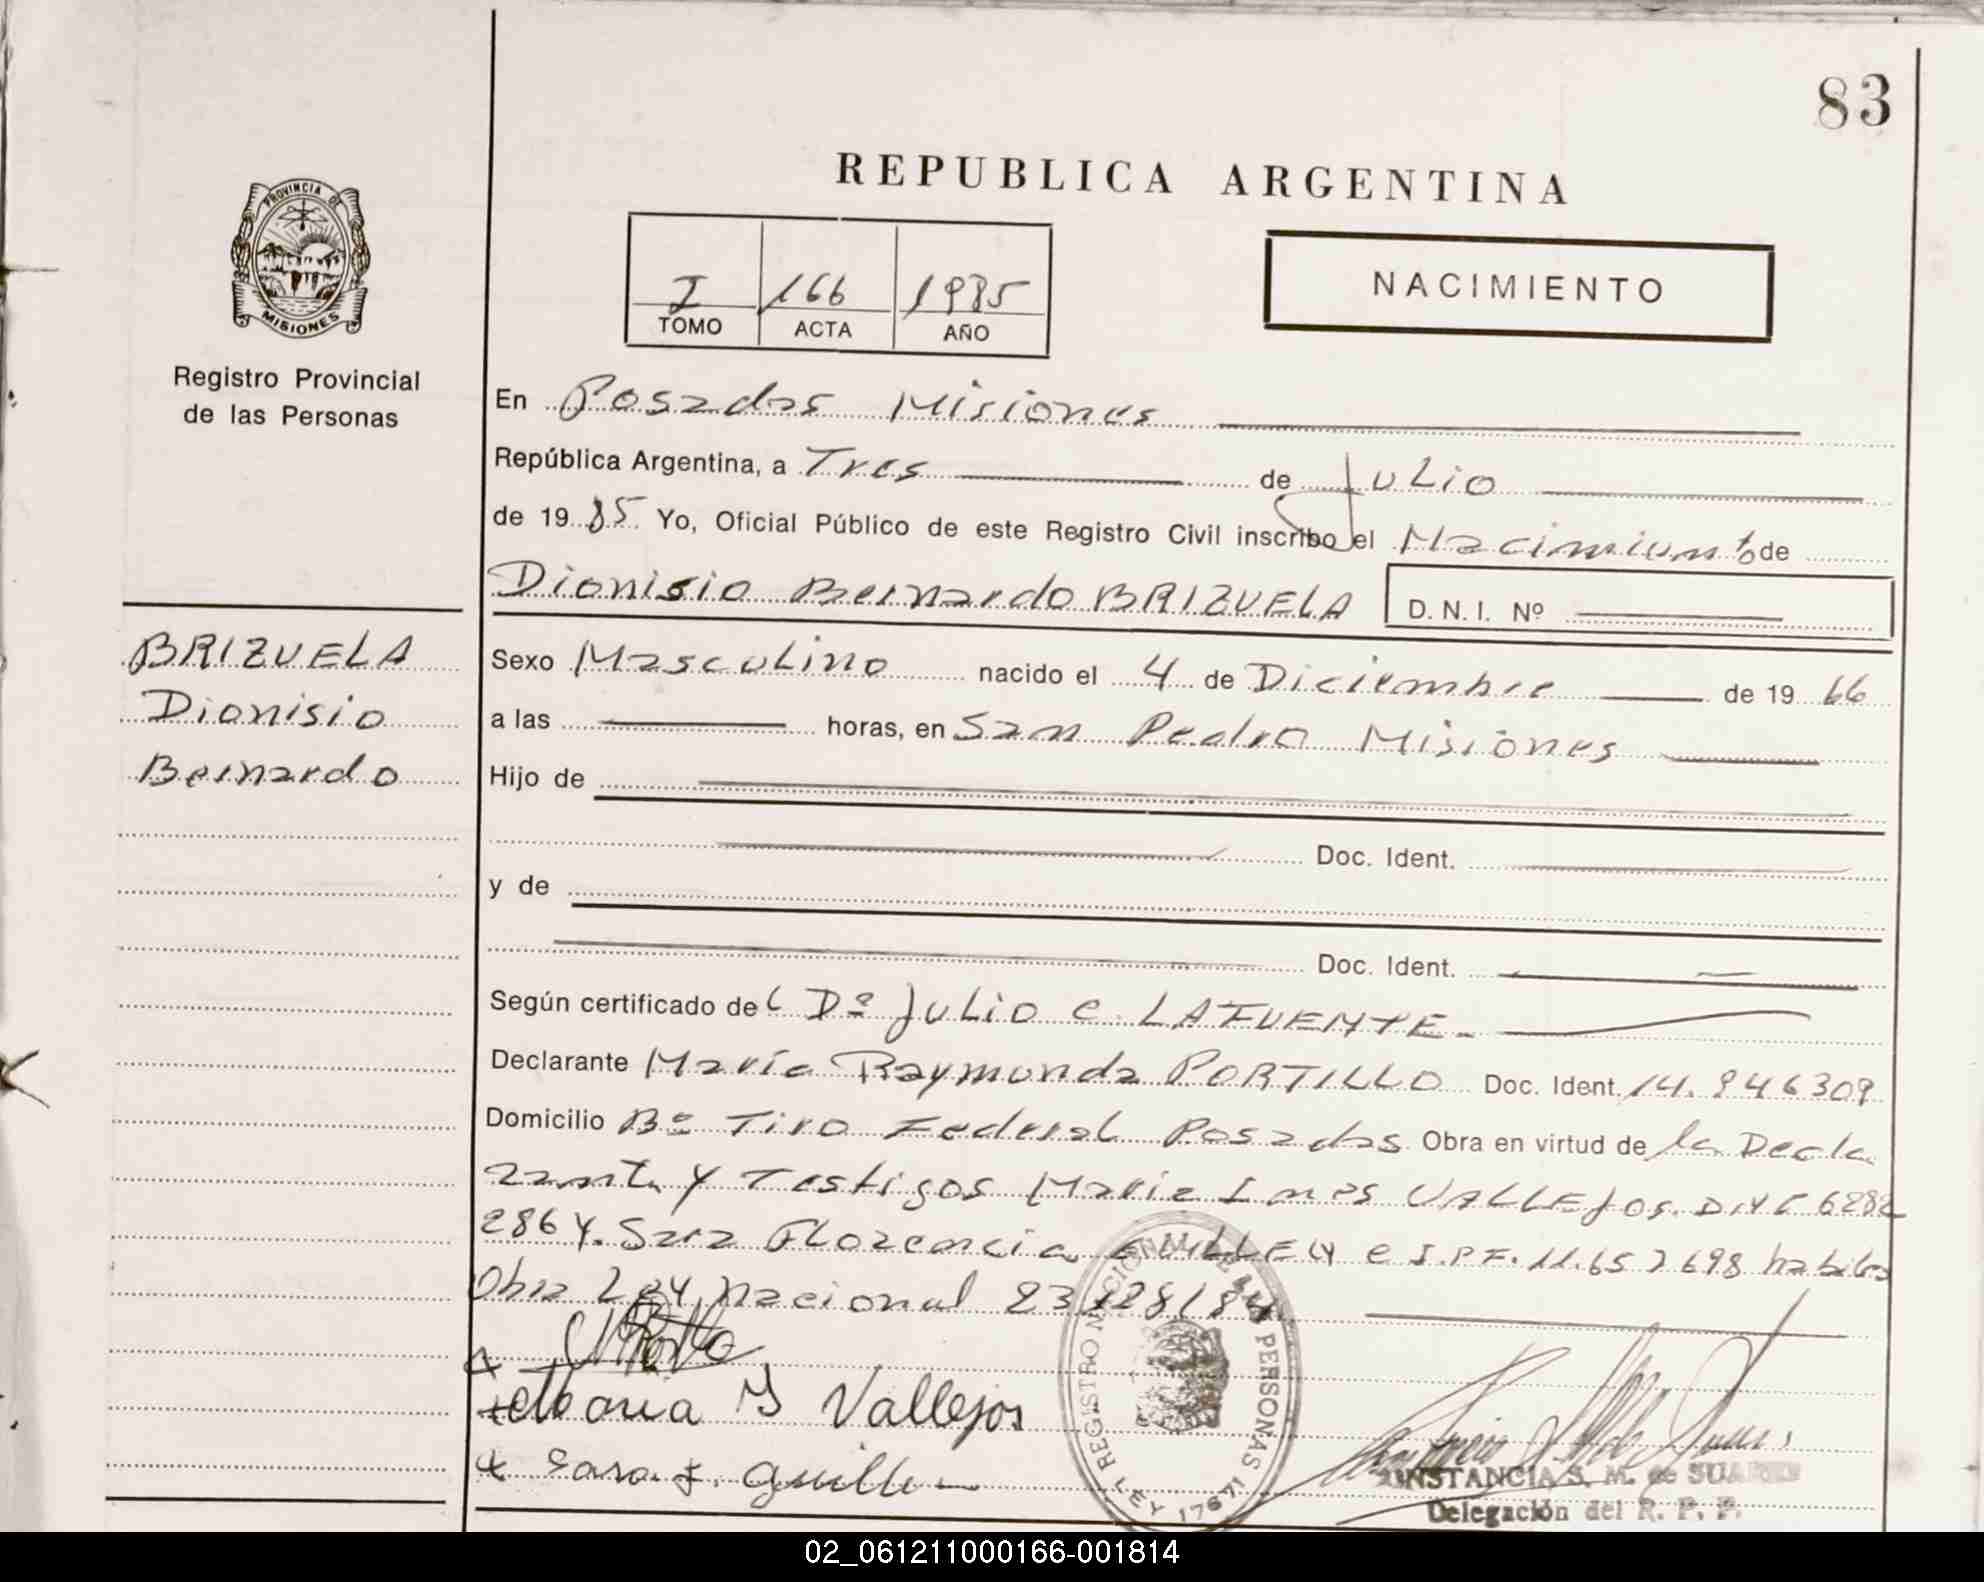 83
REPUBLICA ARGENTINA
PROVINCIA DE
MISIONES
Registro Provincial
de las Personas
I 166 1985
TOMO ACTA AÑO
NACIMIENTO
En Posadas Misiones
República Argentina, a Tres de Julio
de 19 85 Yo, Oficial Público de este Registro Civil inscribo el Nacimiento de
Dionisio Bernardo BRIZUELA D.N.I. Nº
BRIZUELA
Dionisio
Bernardo
Sexo Masculino nacido el 4 de Diciembre de 19 66
a las horas, en San Pedro Misiones
Hijo de
Doc. Ident.
y de
Doc. Ident.
Según certificado del Dº Julio C. LAFUENTE.
Declarante María Raymunda PORTILLO Doc. Ident. 14.946309
Domicilio Bº Tiro Federal Posadas Obra en virtud de la Decla
rante y Testigos Maria Ines VALLEJOS. D.N.C 6282
286 Y. Sara Florencia GUILLEN C.I.P.F. 11.657698 habiles
Obra Ley Nacional 23128/84
Maria Y Vallejos
Sara F. Guillen
REGISTRO NACIONAL DE LAS PERSONAS
LEY 17671
CONSTANCIA S. M. de SUAREZ
Delegación del R. P. P.
02_061211000166-001814